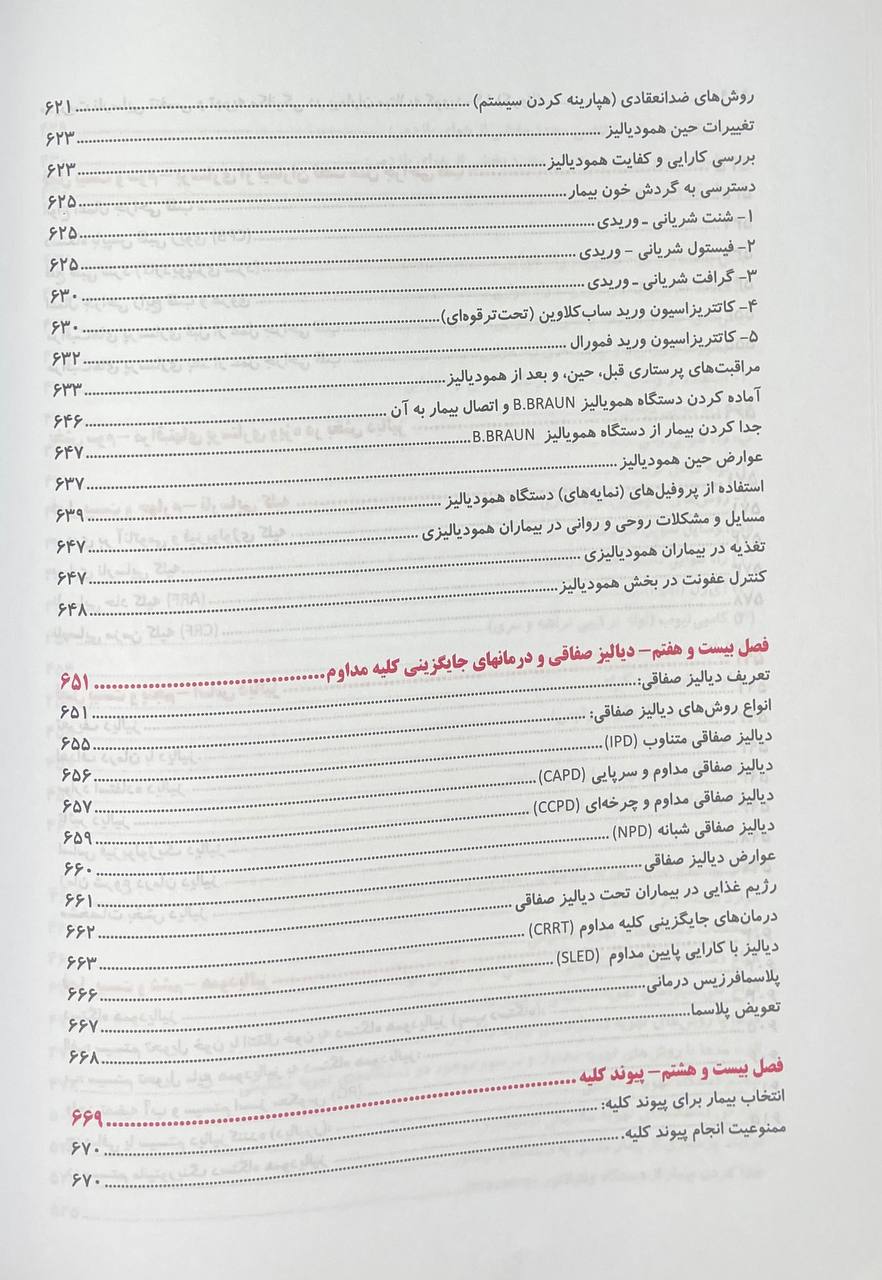 روش‌های ضدانعقادی (هپارینه کردن سیستم) ۶۲۱
تغییرات حین همودیالیز ۶۲۳
بررسی کارایی و کفایت همودیالیز ۶۲۳
دسترسی به گردش خون بیمار ۶۲۵
۱- شنت شریانی ـ وریدی ۶۲۵
۲- فیستول شریانی - وریدی ۶۲۵
۳- گرافت شریانی ـ وریدی ۶۳۰
۴- کاتتریزاسیون ورید ساب‌کلاوین (تحت‌ترقوه‌ای) ۶۳۰
۵- کاتتریزاسیون ورید فمورال ۶۳۲
مراقبت‌های پرستاری قبل، حین، و بعد از همودیالیز ۶۳۳
آماده کردن دستگاه همویالیز B.BRAUN و اتصال بیمار به آن ۶۴۶
جدا کردن بیمار از دستگاه همویالیز B.BRAUN ۶۴۷
عوارض حین همودیالیز ۶۳۷
استفاده از پروفیل‌های (نمایه‌های) دستگاه همودیالیز ۶۳۹
مسایل و مشکلات روحی و روانی در بیماران همودیالیزی ۶۴۷
تغذیه در بیماران همودیالیزی ۶۴۷
کنترل عفونت در بخش همودیالیز ۶۴۸
فصل بیست و هفتم- دیالیز صفاقی و درمانهای جایگزینی کلیه مداوم ۶۵۱
تعریف دیالیز صفاقی: ۶۵۱
انواع روش‌های دیالیز صفاقی: ۶۵۵
دیالیز صفاقی متناوب (IPD) ۶۵۶
دیالیز صفاقی مداوم و سرپایی (CAPD) ۶۵۷
دیالیز صفاقی مداوم و چرخه‌ای (CCPD) ۶۵۹
دیالیز صفاقی شبانه (NPD) ۶۶۰
عوارض دیالیز صفاقی ۶۶۱
رژیم غذایی در بیماران تحت دیالیز صفاقی ۶۶۲
درمان‌های جایگزینی کلیه مداوم (CRRT) ۶۶۳
دیالیز با کارایی پایین مداوم (SLED) ۶۶۶
پلاسمافرزیس درمانی ۶۶۷
تعویض پلاسما ۶۶۸
فصل بیست و هشتم- پیوند کلیه ۶۶۹
انتخاب بیمار برای پیوند کلیه: ۶۷۰
ممنوعیت انجام پیوند کلیه. ۶۷۰